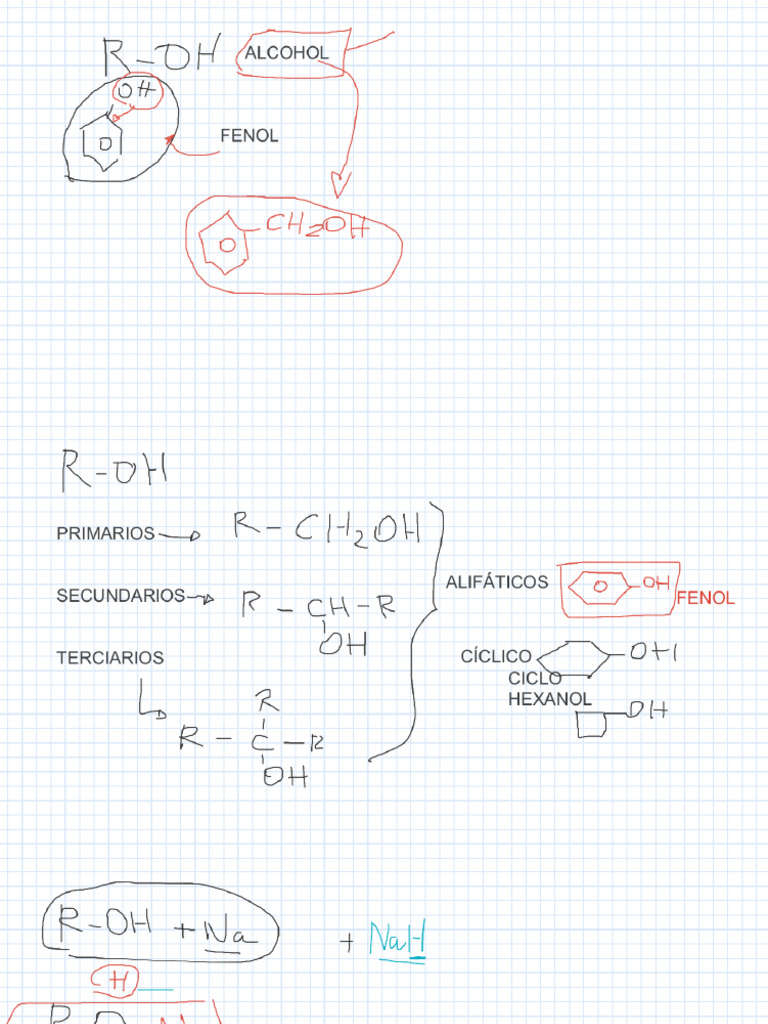 R-OH ALCOHOL
OH
FENOL
CH2OH
R-OH
PRIMARIOS R-CH2OH
ALIFÁTICOS OH FENOL
SECUNDARIOS R-CH-R
OH
TERCIARIOS
CÍCLICO OH
CICLO
HEXANOL
OH
R
R-C-R
OH
R-OH + Na + NaH
H